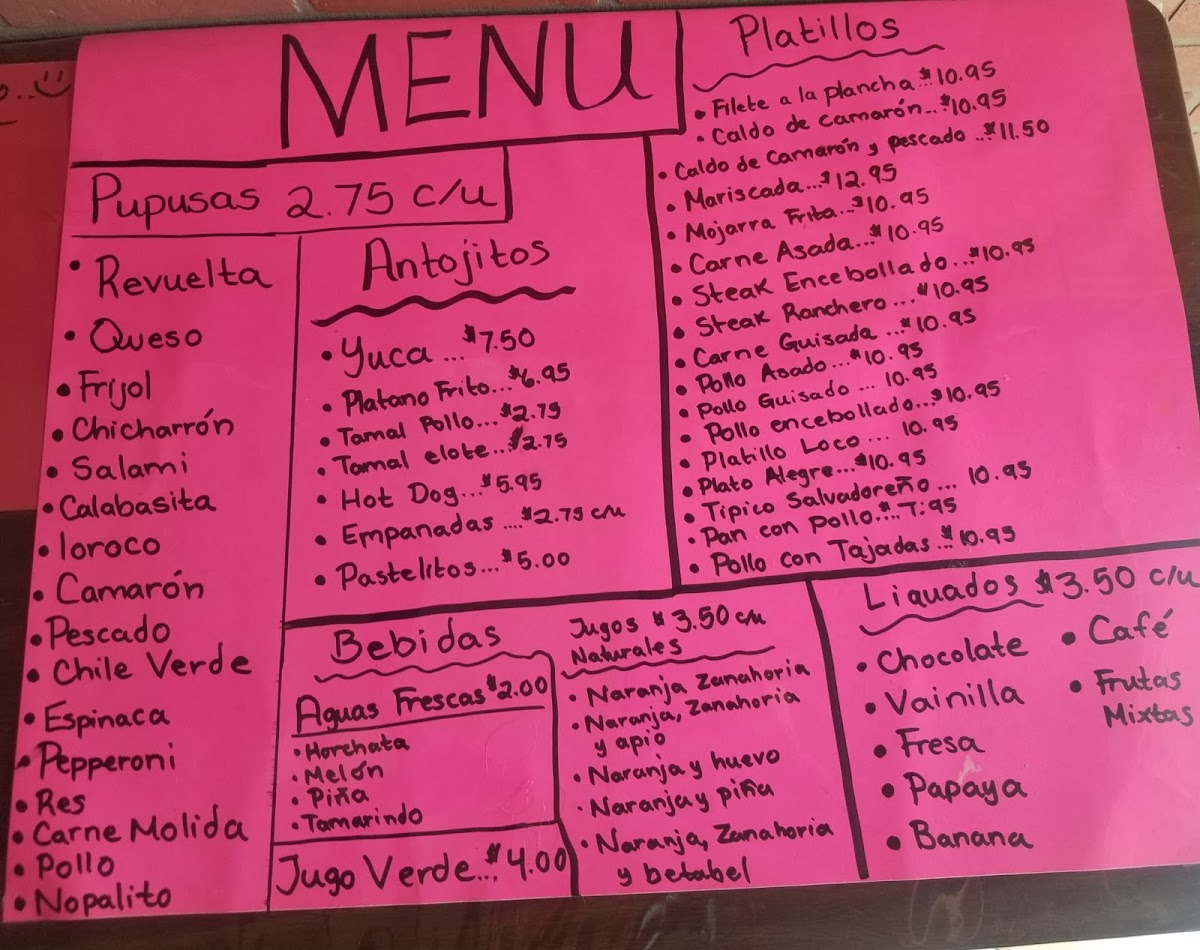 MENU
Pupusas 2.75 c/u
• Revuelta
• Queso
• Frijol
• Chicharrón
• Salami
• Calabasita
• loroco
• Camarón
• Pescado
• Chile Verde
• Espinaca
• Pepperoni
• Res
• Carne Molida
• Pollo
• Nopalito
Antojitos
• Yuca ... $7.50
• Platano Frito... $6.95
• Tamal Pollo... $2.75
• Tamal elote... $2.75
• Hot Dog... $5.95
• Empanadas .... $2.75 c/u
• Pastelitos... $5.00
Platillos
• Filete a la plancha.. $10.95
• Caldo de camarón... $10.95
• Caldo de camarón y pescado ... $11.50
• Mariscada... $12.95
• Mojarra Frita... $10.95
• Carne Asada... $10.95
• Steak Encebollado... $10.95
• Steak Ranchero ... $10.95
• Carne Guisada ... $10.95
• Pollo Asado... $10.95
• Pollo Guisado ... 10.95
• Pollo encebollado... $10.95
• Platillo Loco .... 10.95
• Plato Alegre... $10.95
• Tipico Salvadoreño ... 10.95
• Pan con pollo... $7.95
• Pollo con Tajadas... $10.95
Bebidas
Aguas Frescas $2.00
• Horchata
• Melón
• Piña
• Tamarindo
Jugo Verde... $4.00
Jugos $3.50 c/u
Naturales
• Naranja Zanahoria
• Naranja, Zanahoria
y apio
• Naranja y huevo
• Naranja y piña
• Naranja, Zanahoria
y betabel
Liquados $3.50 c/u
• Chocolate
• Vainilla
• Fresa
• Papaya
• Banana
• Café
• Frutas
Mixtas